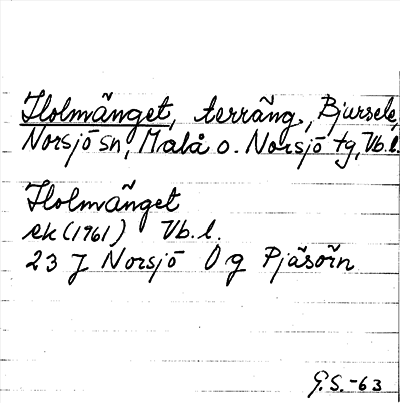 Holmänget, terräng, Bjursele,
Norsjö sn, Malå o. Norsjö tg, Vb.l.
Holmänget
ek (1961) Vb. l.
23 J Norsjö O g Pjäsörn
G.S.-63